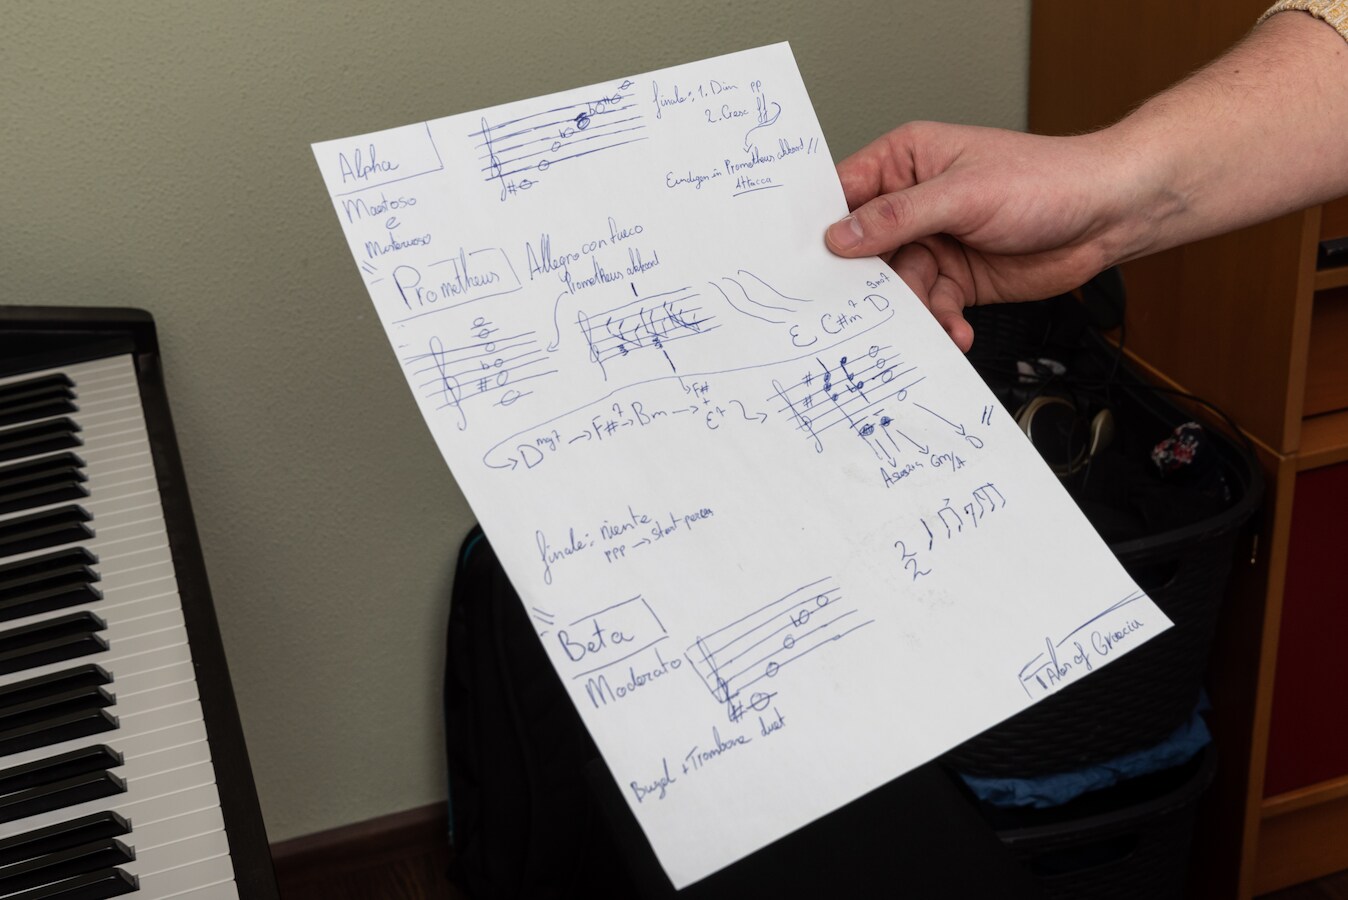 Alpha
Maestoso
e
Misterioso
finale: 1. Dim pp
2. Cresc ff
Eindigen in Prometheus akkoord //
Attacca
Prometheus
Allegro con fueco
Prometheus akkoord
E C#m7 D
Dmaj7 → F#7 → Bm → F#
+
E7
Gm/A
D
finale: niente
ppp → start percu
2
2
Beta
Moderato
Bugel + Trombone duet
Tales of Graecia